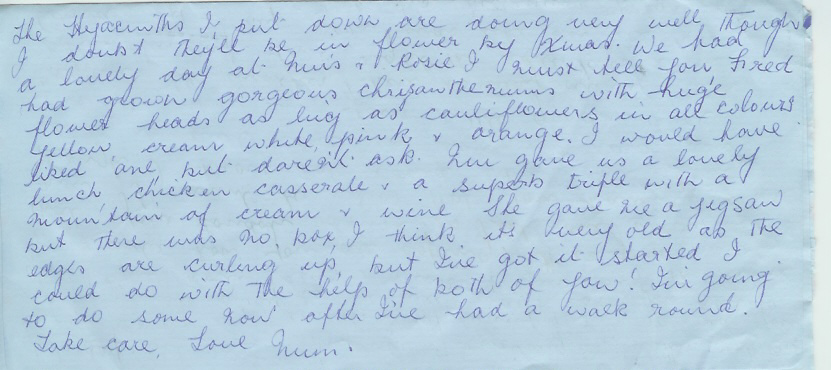 The Hyacinths I put down are doing very well, though
I doubt they'll be in flower by Xmas. We had
a lovely day at Mui's & Rosie I must tell you Fred
had grown gorgeous chrisanthemums with huge
flower heads as big as cauliflowers in all colours
yellow cream white, pink & orange. I would have
liked one, but daren't ask. Mui gave us a lovely
lunch, chicken casserale & a superb trifle with a
mountain of cream & wine She gave me a jigsaw
but there was no. box, I think it's very old as the
edges are curling up, but I've got it started I
could do with the help of both of you! I'm going
to do some now after I've had a walk round.
Take care, Love Mum.